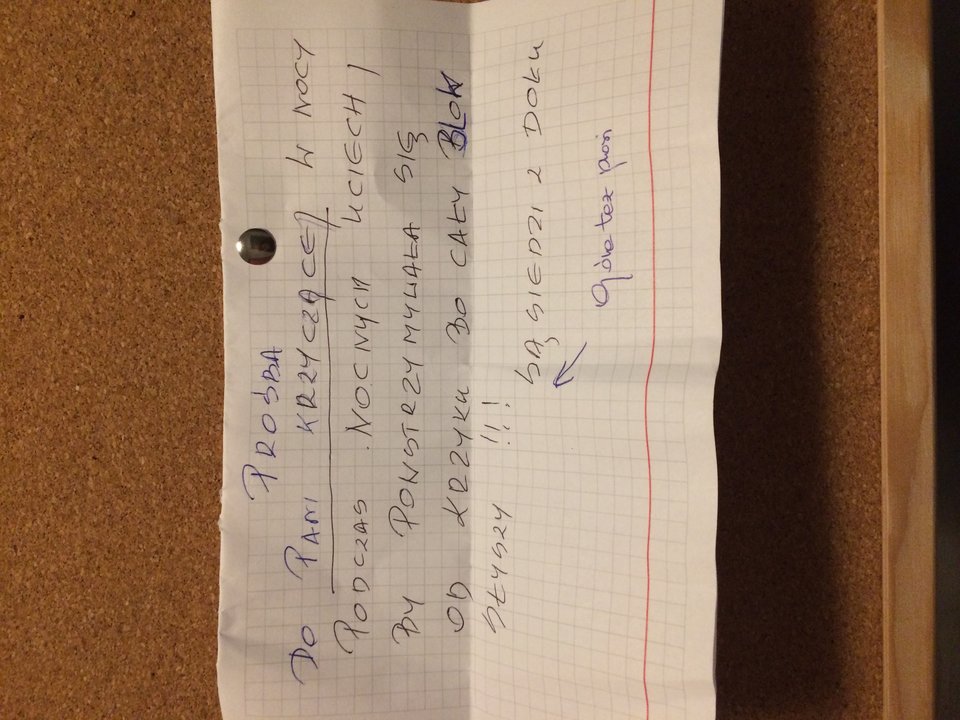 PROŚBA
DO PANI KRZYCZĄCEJ W NOCY
PODCZAS NOCNYCH UCIECH,
BY POWSTRZYMYWAŁA SIĘ
OD KRZYKU BO CAŁY BLOK
SŁYSZY !!!
SĄSIEDZI Z DOKU
też pani